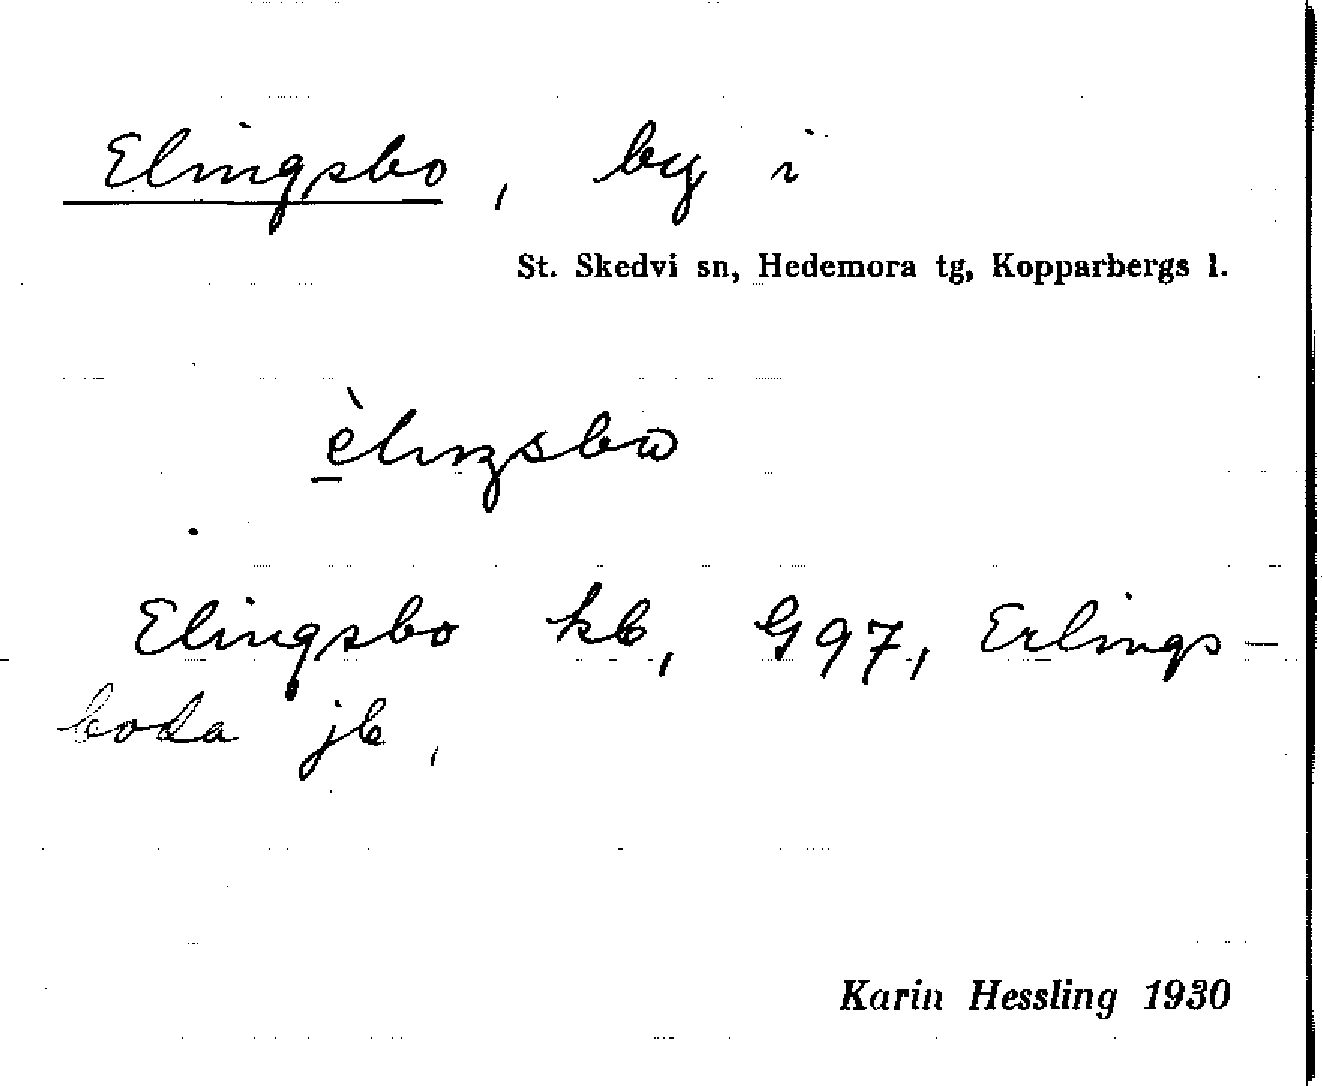 Elingsbo, by i
St. Skedvi sn, Hedemora tg, Kopparbergs l.
è̠lıŋsbω
Elingsbo kb, G97, Erlings-
boda jb,
Karin Hessling 1930